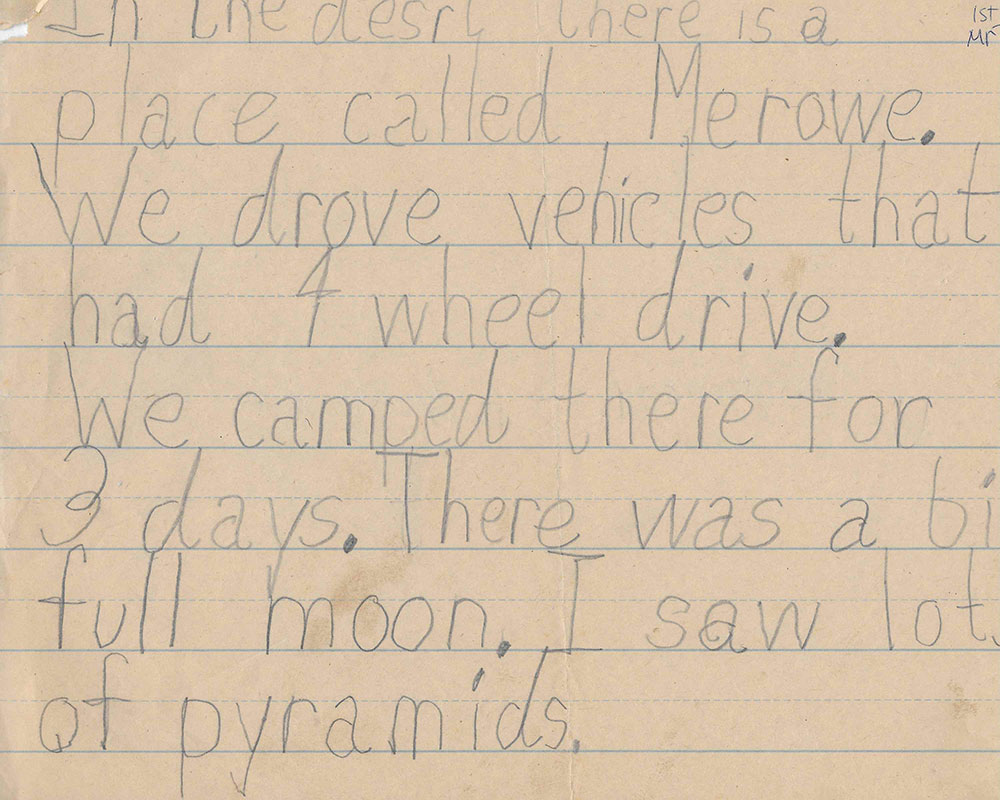 In the desrt there is a
1st
Mr
place called Merowe.
We drove vehicles that
had 4 wheel drive.
We camped there for
3 days. There was a bi
full moon. I saw lot
of pyramids.